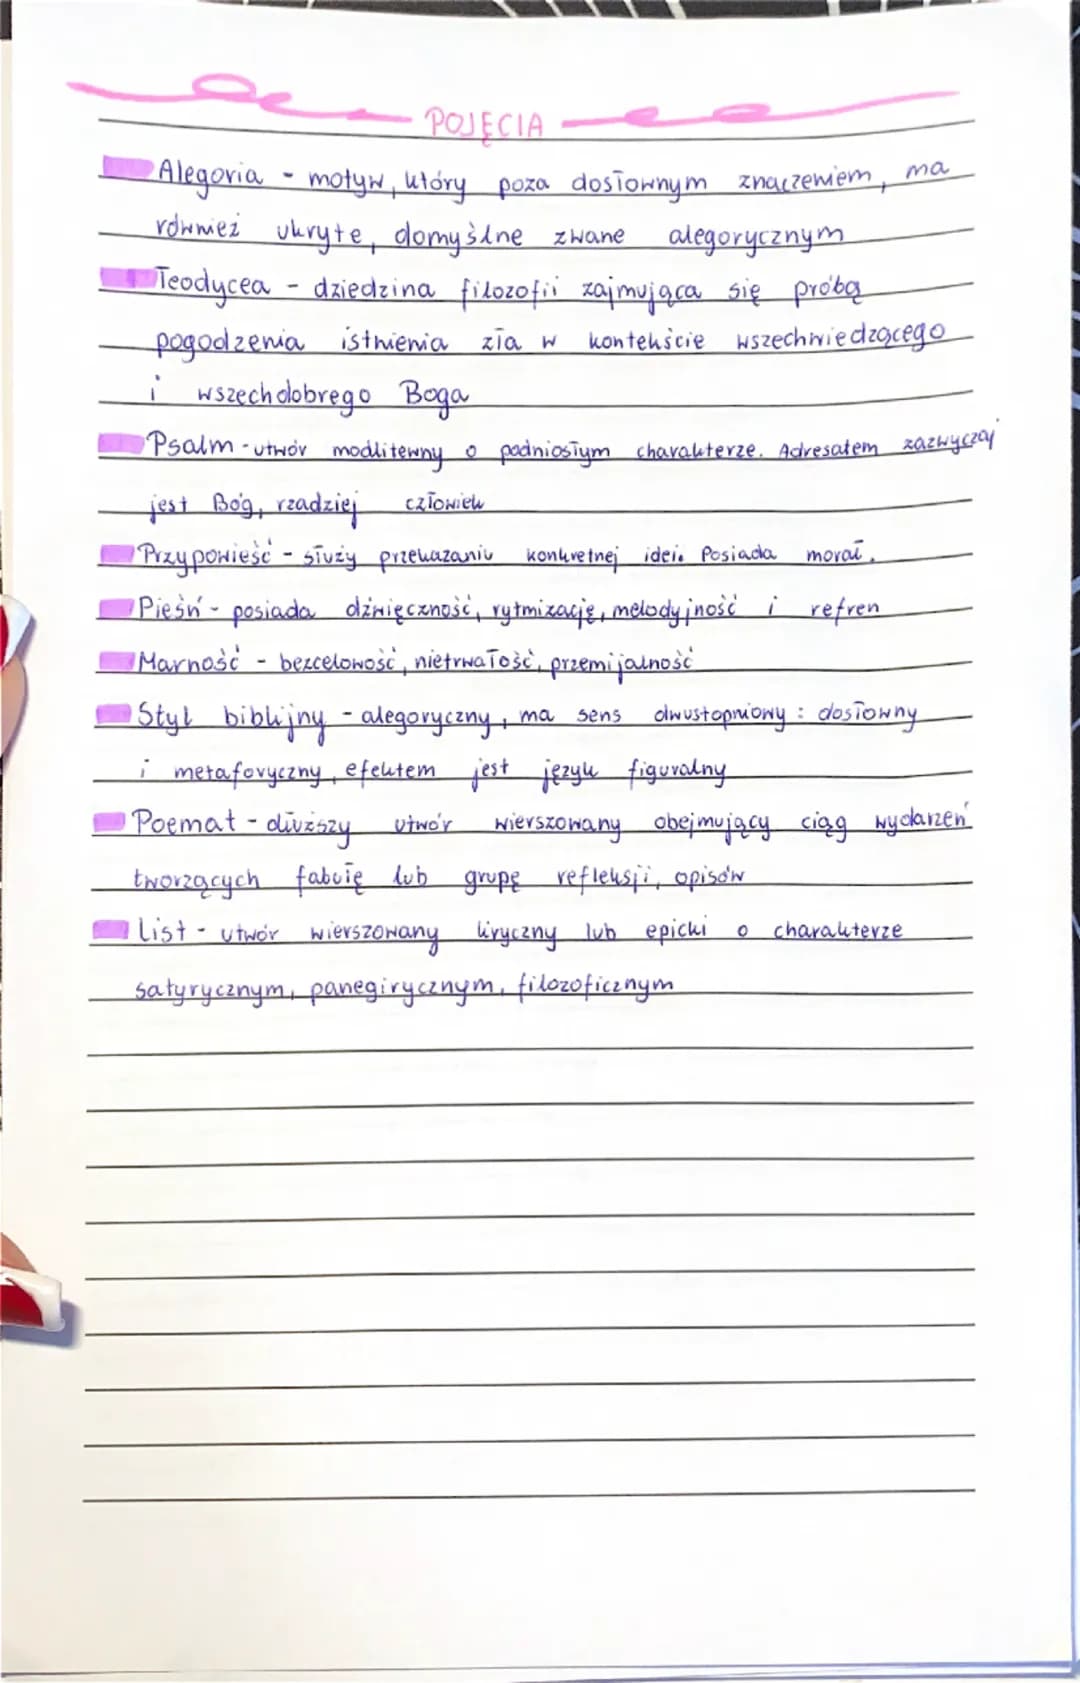 POJĘCIA
Alegoria - motyw, który poza dosłownym znaczeniem, ma
również ukryte, domyślne zwane alegorycznym
Teodycea - dziedzina filozofii zajmująca się próbą
pogodzenia istnienia zła w kontekście wszechwiedzącego
i wszechdobrego Boga
Psalm - utwór modlitewny o podniosłym charakterze. Adresatem zazwyczaj
jest Bóg, rzadziej człowiek
Przypowieść - służy przekazaniu konkretnej idei. Posiada morał.
Pieśń - posiada dźwięczność, rytmizację, melodyjność i refren
Marność - bezcelowość, nietrwałość, przemijalność
Styl biblijny - alegoryczny, ma sens dwustopniowy : dosłowny
i metaforyczny, efektem jest język figuralny
Poemat - dłuższy utwór wierszowany obejmujący ciąg wydarzeń
tworzących fabułę lub grupę refleksji, opisów
List - utwór wierszowany liryczny lub epicki o charakterze
satyrycznym, panegirycznym, filozoficznym